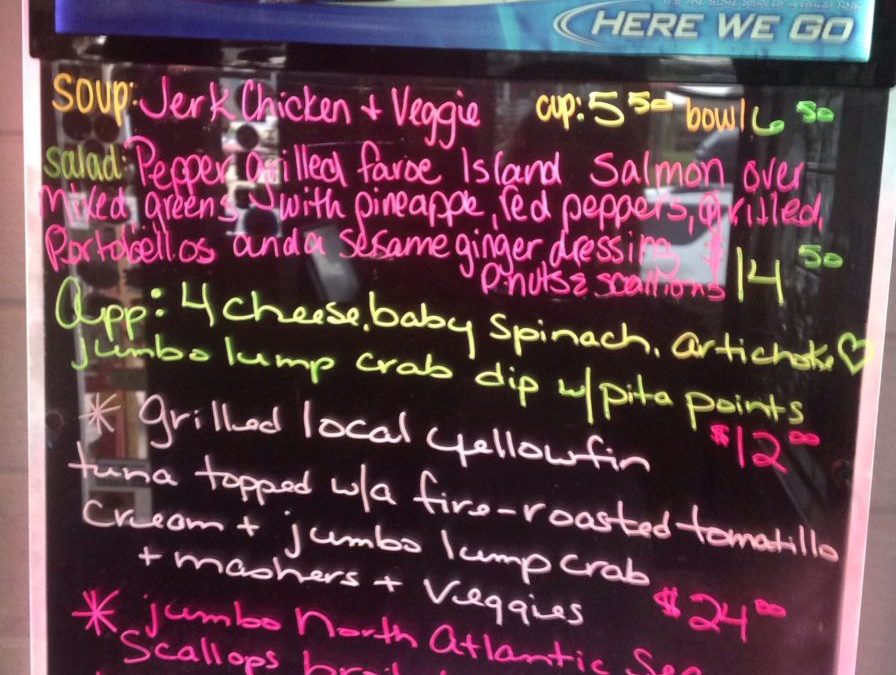 HERE WE GO
Soup: Jerk Chicken + Veggie cup: 5 50 bowl 6 50
Salad: Pepper grilled faroe Island Salmon over
Mixed greens with pineapple, red peppers, grilled
Portobellos and a sesame ginger dressing +
P-nuts & scallions 14 50
App: 4 cheese, baby spinach, artichoke ♡
jumbo lump crab dip w/pita points
* grilled local yellowfin $12 00
tuna topped w/a fire-roasted tomatillo
cream + jumbo lump crab
+ mashers + Veggies $24 00
* jumbo North Atlantic Sea
Scallops